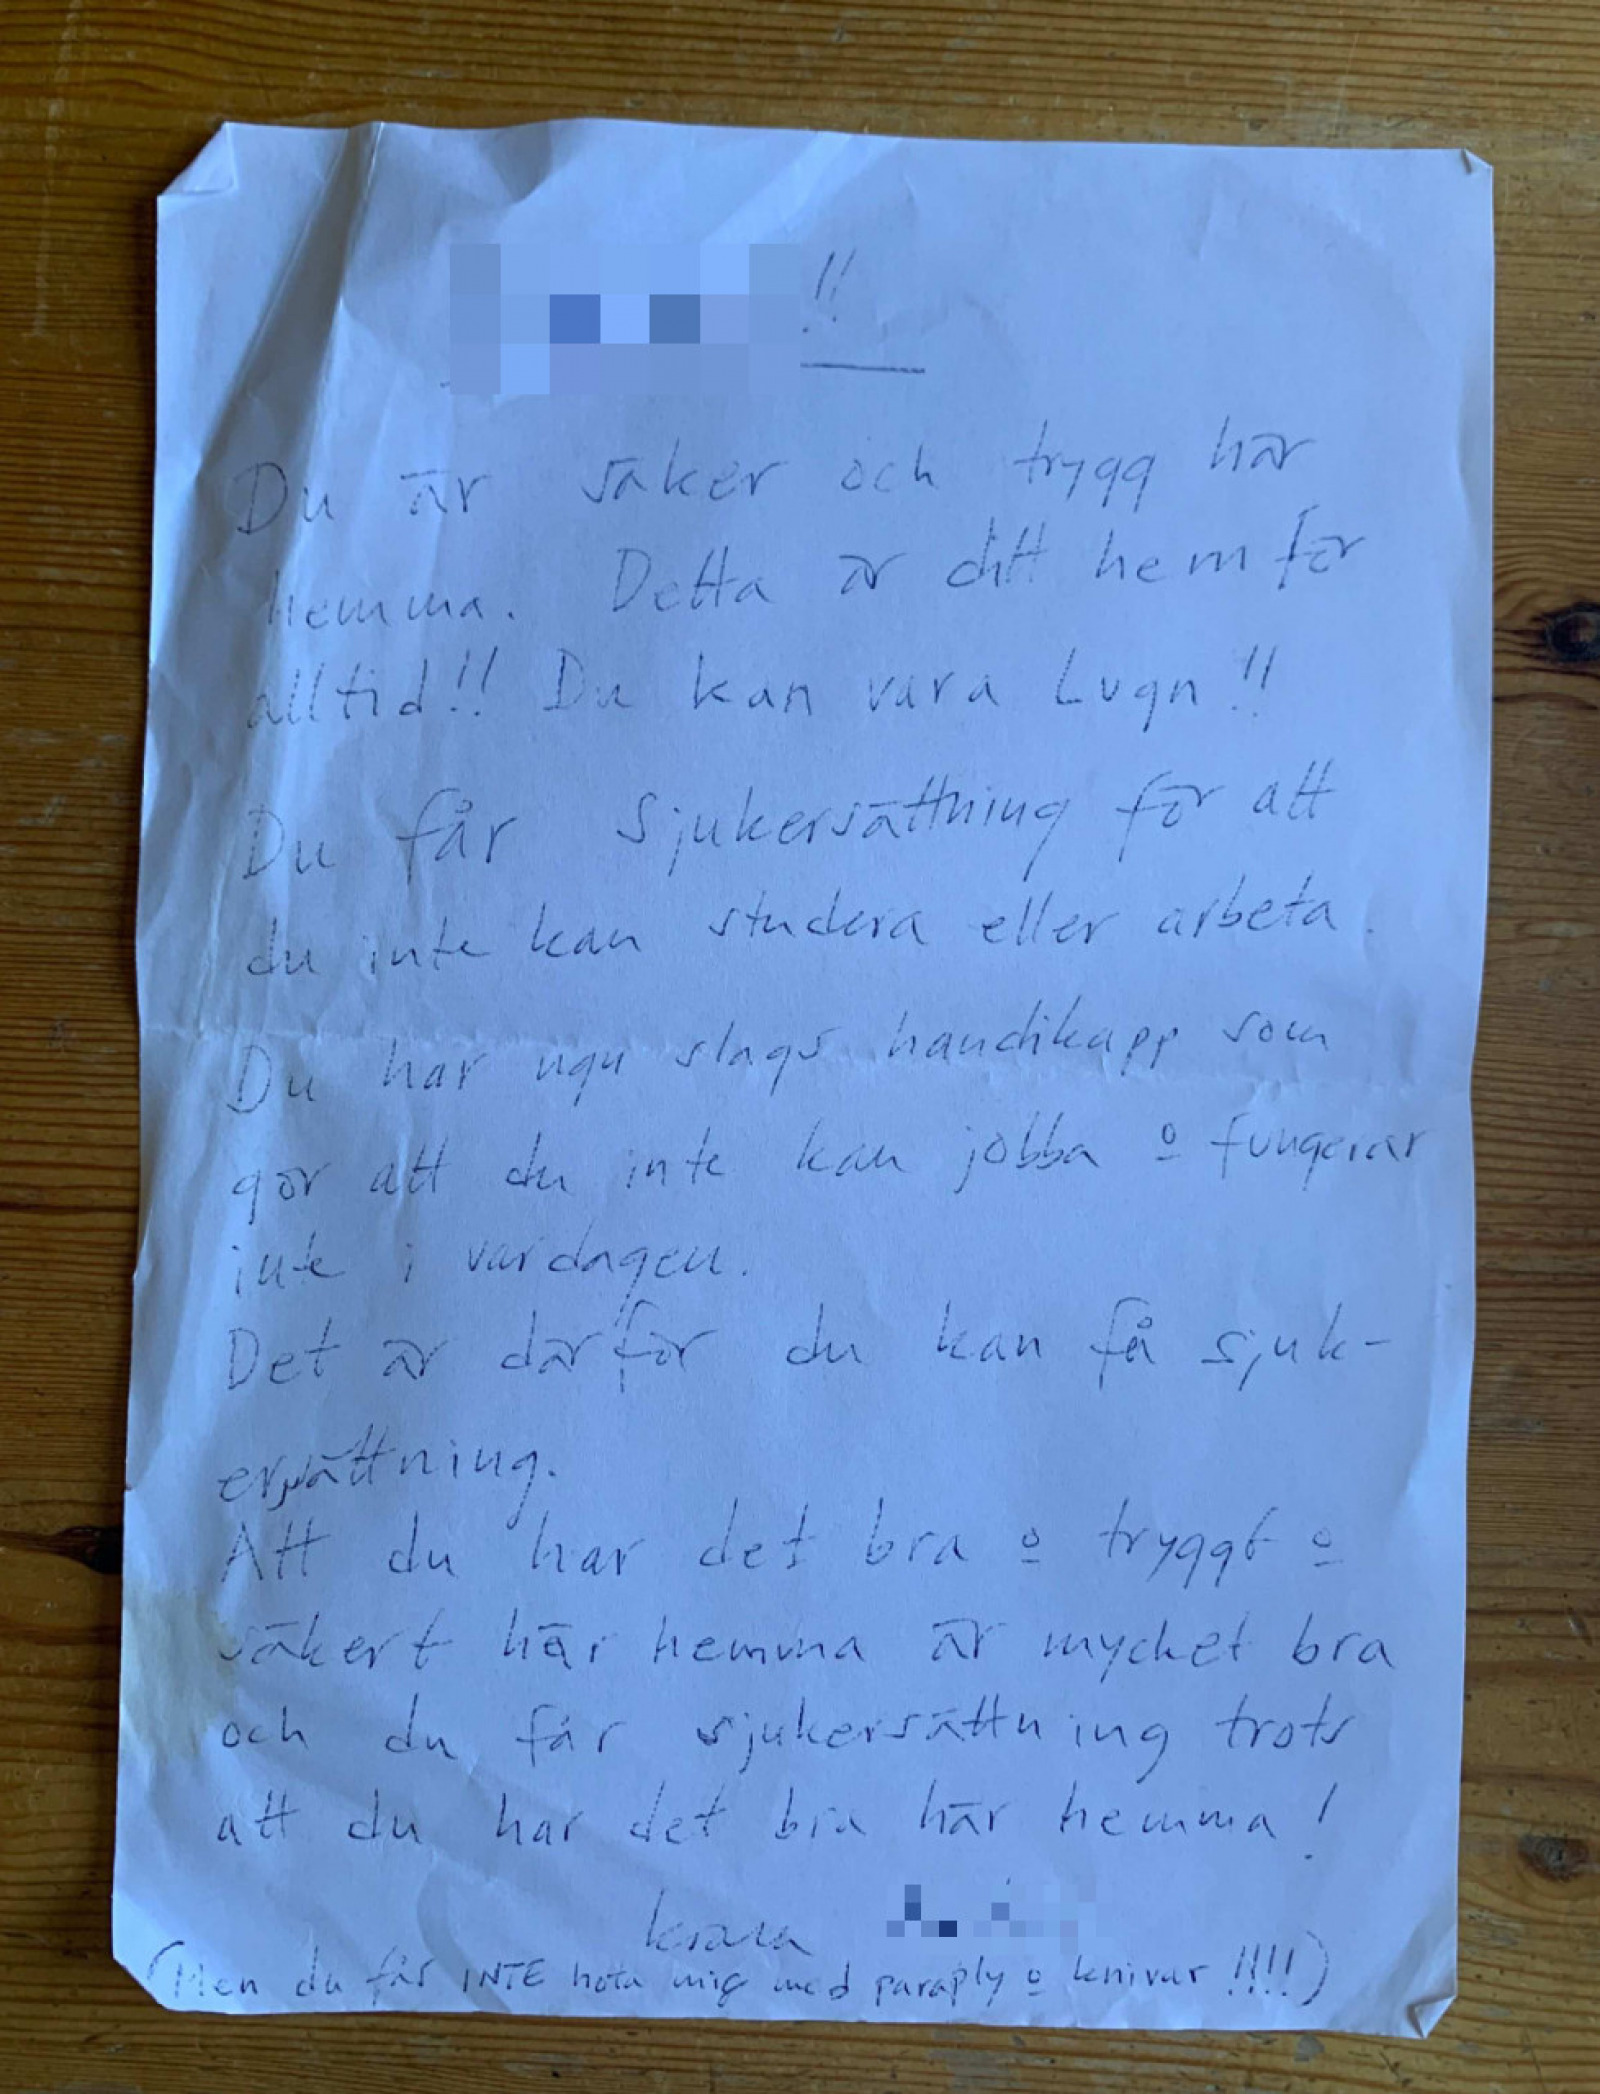 !!
Du är säker och trygg här
hemma. Detta är ditt hem för
alltid!! Du kan vara Lugn!!
Du får Sjukersättning för att
du inte kan studera eller arbeta.
Du har ngn slags handikapp som
gör att du inte kan jobba o fungerar
inte i vardagen.
Det är därför du kan få sjuk-
ersättning.
Att du har det bra o tryggt o
säkert här hemma är mycket bra
och du får sjukersättning trots
att du har det bra här hemma!
kram
(Men du får INTE hota mig med paraply o knivar !!!!)